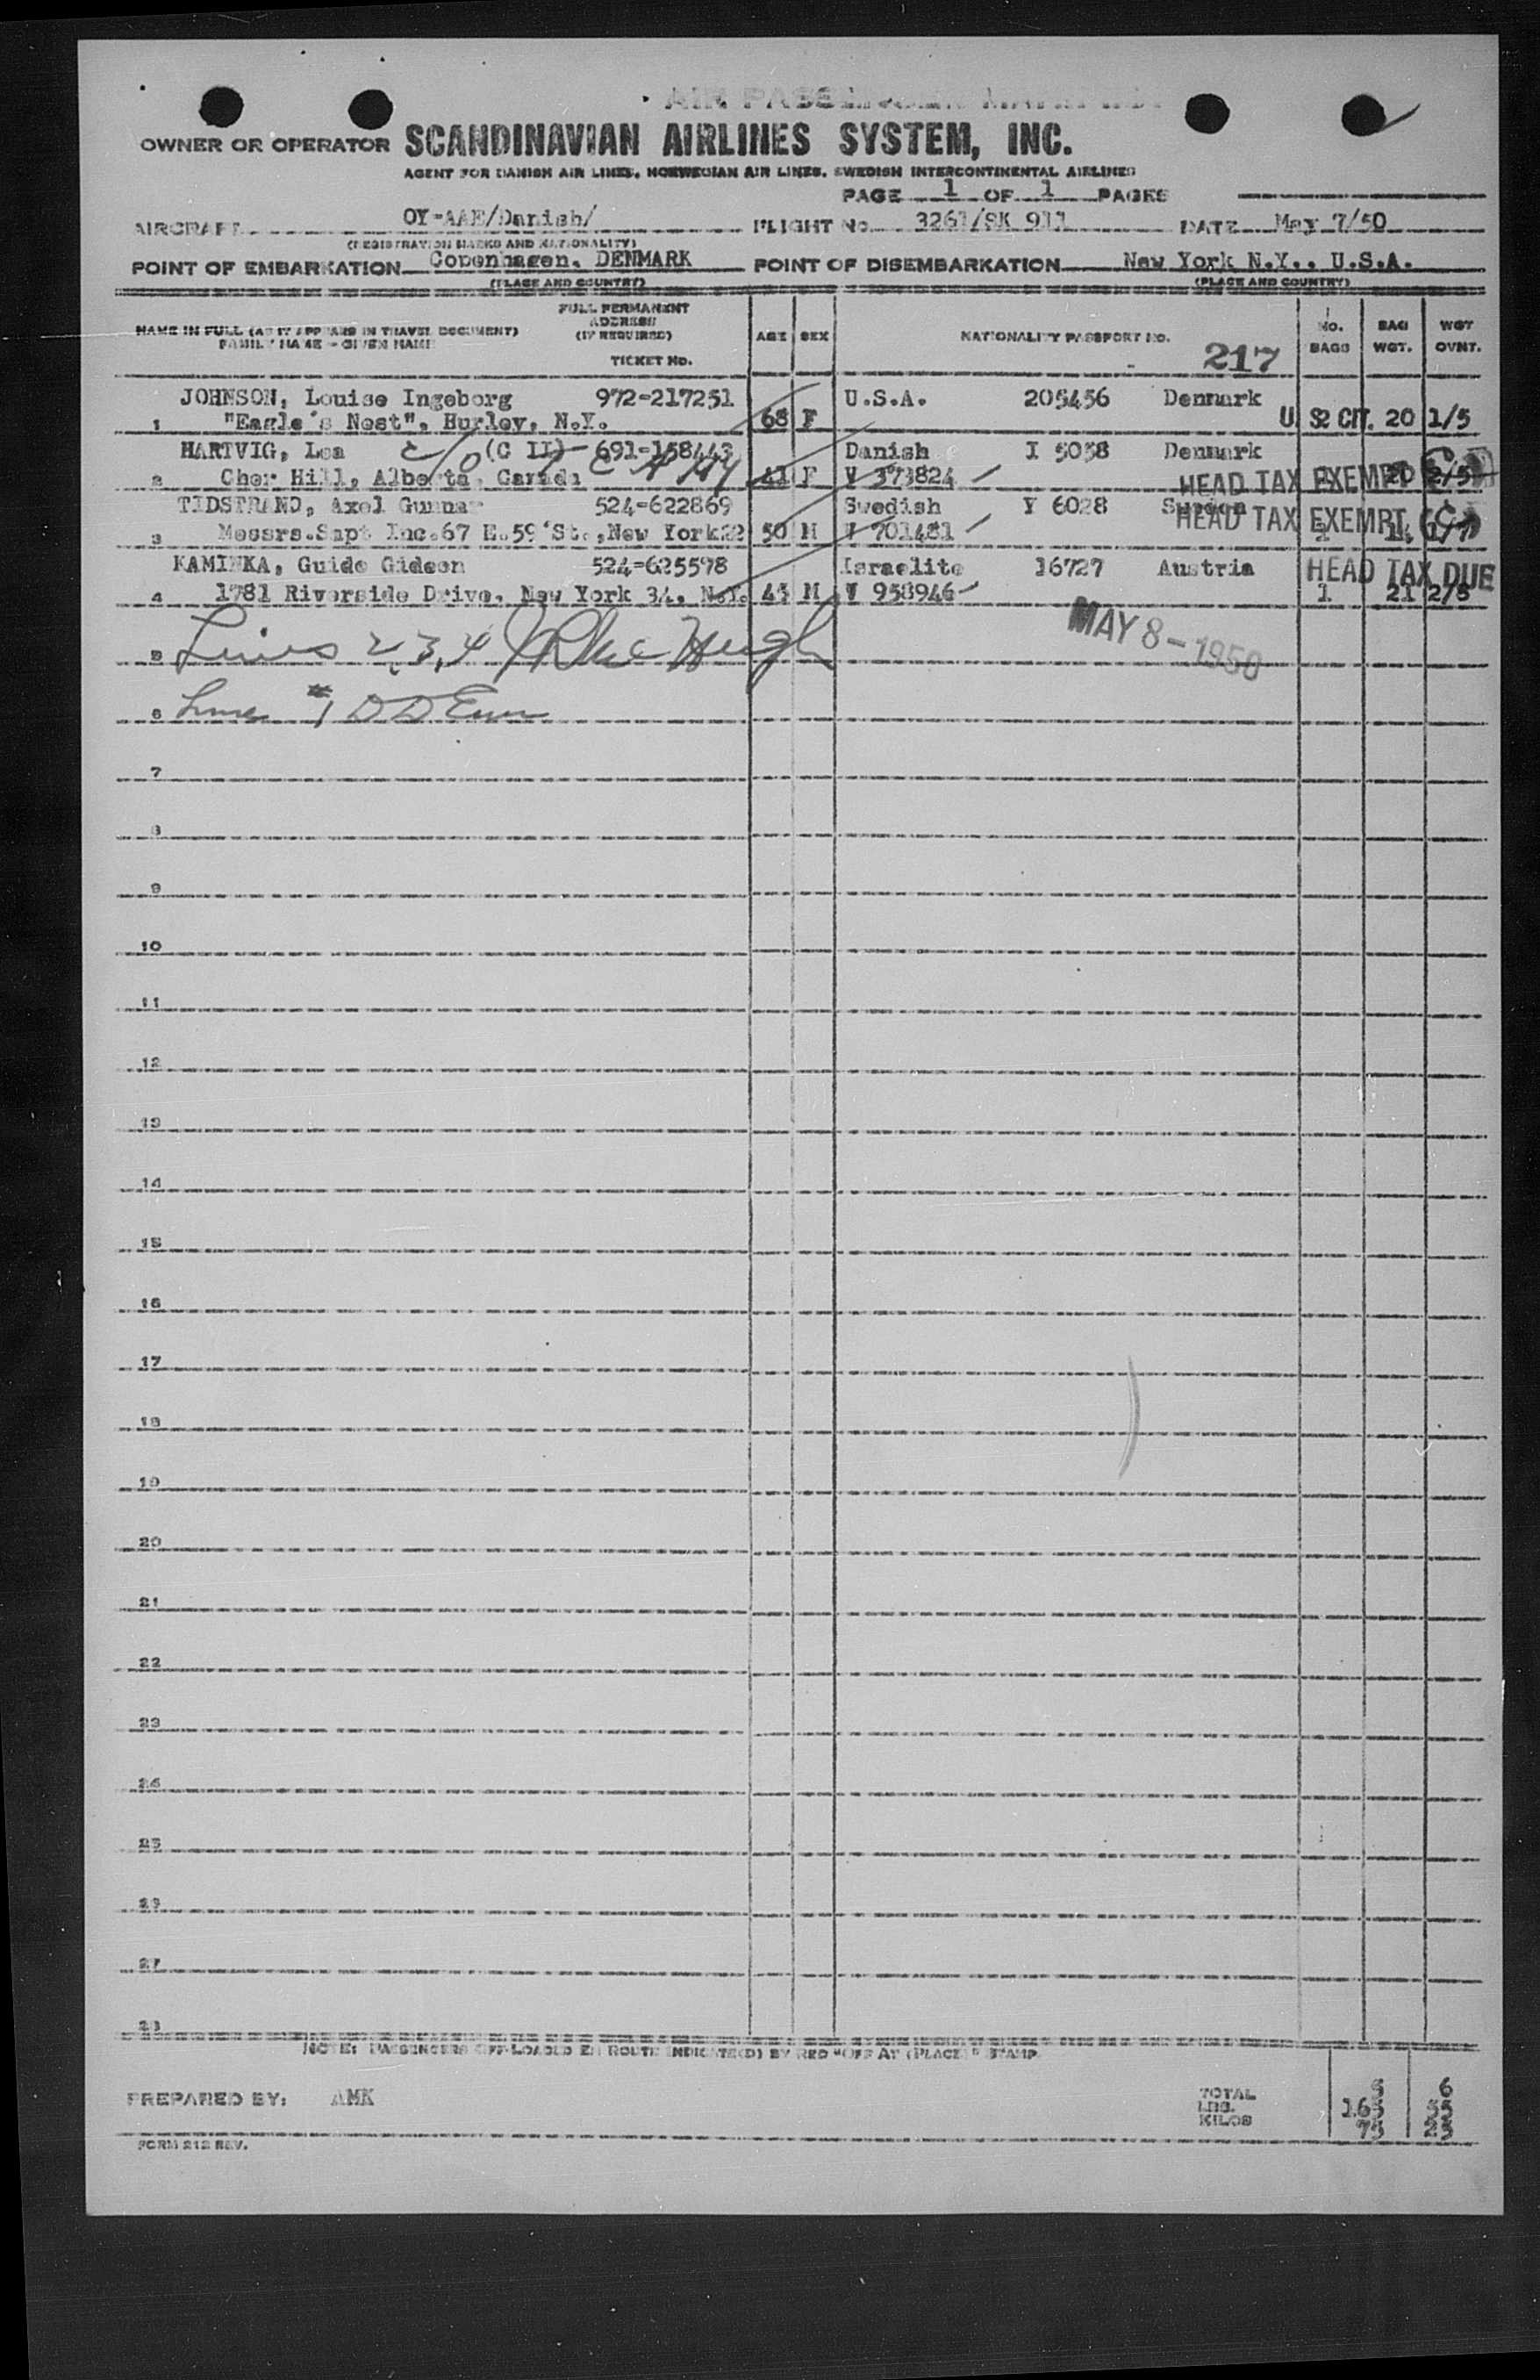 AIR PASSENGER MANIFEST
OWNER OR OPERATOR SCANDINAVIAN AIRLINES SYSTEM, INC.
AGENT FOR DANISH AIR LINES, NORWEGIAN AIR LINES, SWEDISH INTERCONTINENTAL AIRLINES
PAGE 1 OF 1 PAGES
AIRCRAFT OY-AAE/Danish/ FLIGHT No. 3261/SK 911 DATE May 7/50
(REGISTRATION MARKS AND NATIONALITY)
POINT OF EMBARKATION Copenhagen, DENMARK POINT OF DISEMBARKATION New York N.Y., U.S.A.
(PLACE AND COUNTRY) (PLACE AND COUNTRY)
NAME IN FULL (AS IT APPEARS IN TRAVEL DOCUMENT)
FAMILY NAME - GIVEN NAME
FULL PERMANENT
ADDRESS
(IF REQUIRED)
TICKET No.
AGE SEX NATIONALITY PASSPORT NO. 217
NO. BAGS BAG WGT. WGT OVNT.
JOHNSON, Louise Ingeborg 972-217251 U.S.A. 205456 Denmark
1 "Eagle's Nest", Hurley, N.Y. 68 F U S CIT. 20 1/5
HARTVIG, Lea c/o (C II) 691-158443 Danish I 5038 Denmark
2 Cher Hill, Alberta, Canada 41 F V 373824 HEAD TAX EXEMPT 20 2/5
TIDSTRAND, Axel Gunnar 524-622869 Swedish Y 6028 Sweden
3 Messrs.Sapt Inc.67 E.59'St.,New York22 50 M V 701481 HEAD TAX EXEMPT 1
KAMINKA, Guido Gideon 524-625598 Israelite 16727 Austria HEAD TAX DUE
4 1781 Riverside Drive, New York 34, N.Y. 45 M V 958946 1 21 2/5
MAY 8-1950
5 Lines 2, 3, 4
6 Line #1
7
8
9
10
11
12
13
14
15
16
17
18
19
20
21
22
23
24
25
26
27
28
NOTE: PASSENGERS OFF-LOADED EN ROUTE INDICATE(D) BY RED "OFF AT (PLACE)" STAMP
PREPARED BY: AMK
TOTAL 6
LBS. 163
KILOS 75
FORM 212 REV.